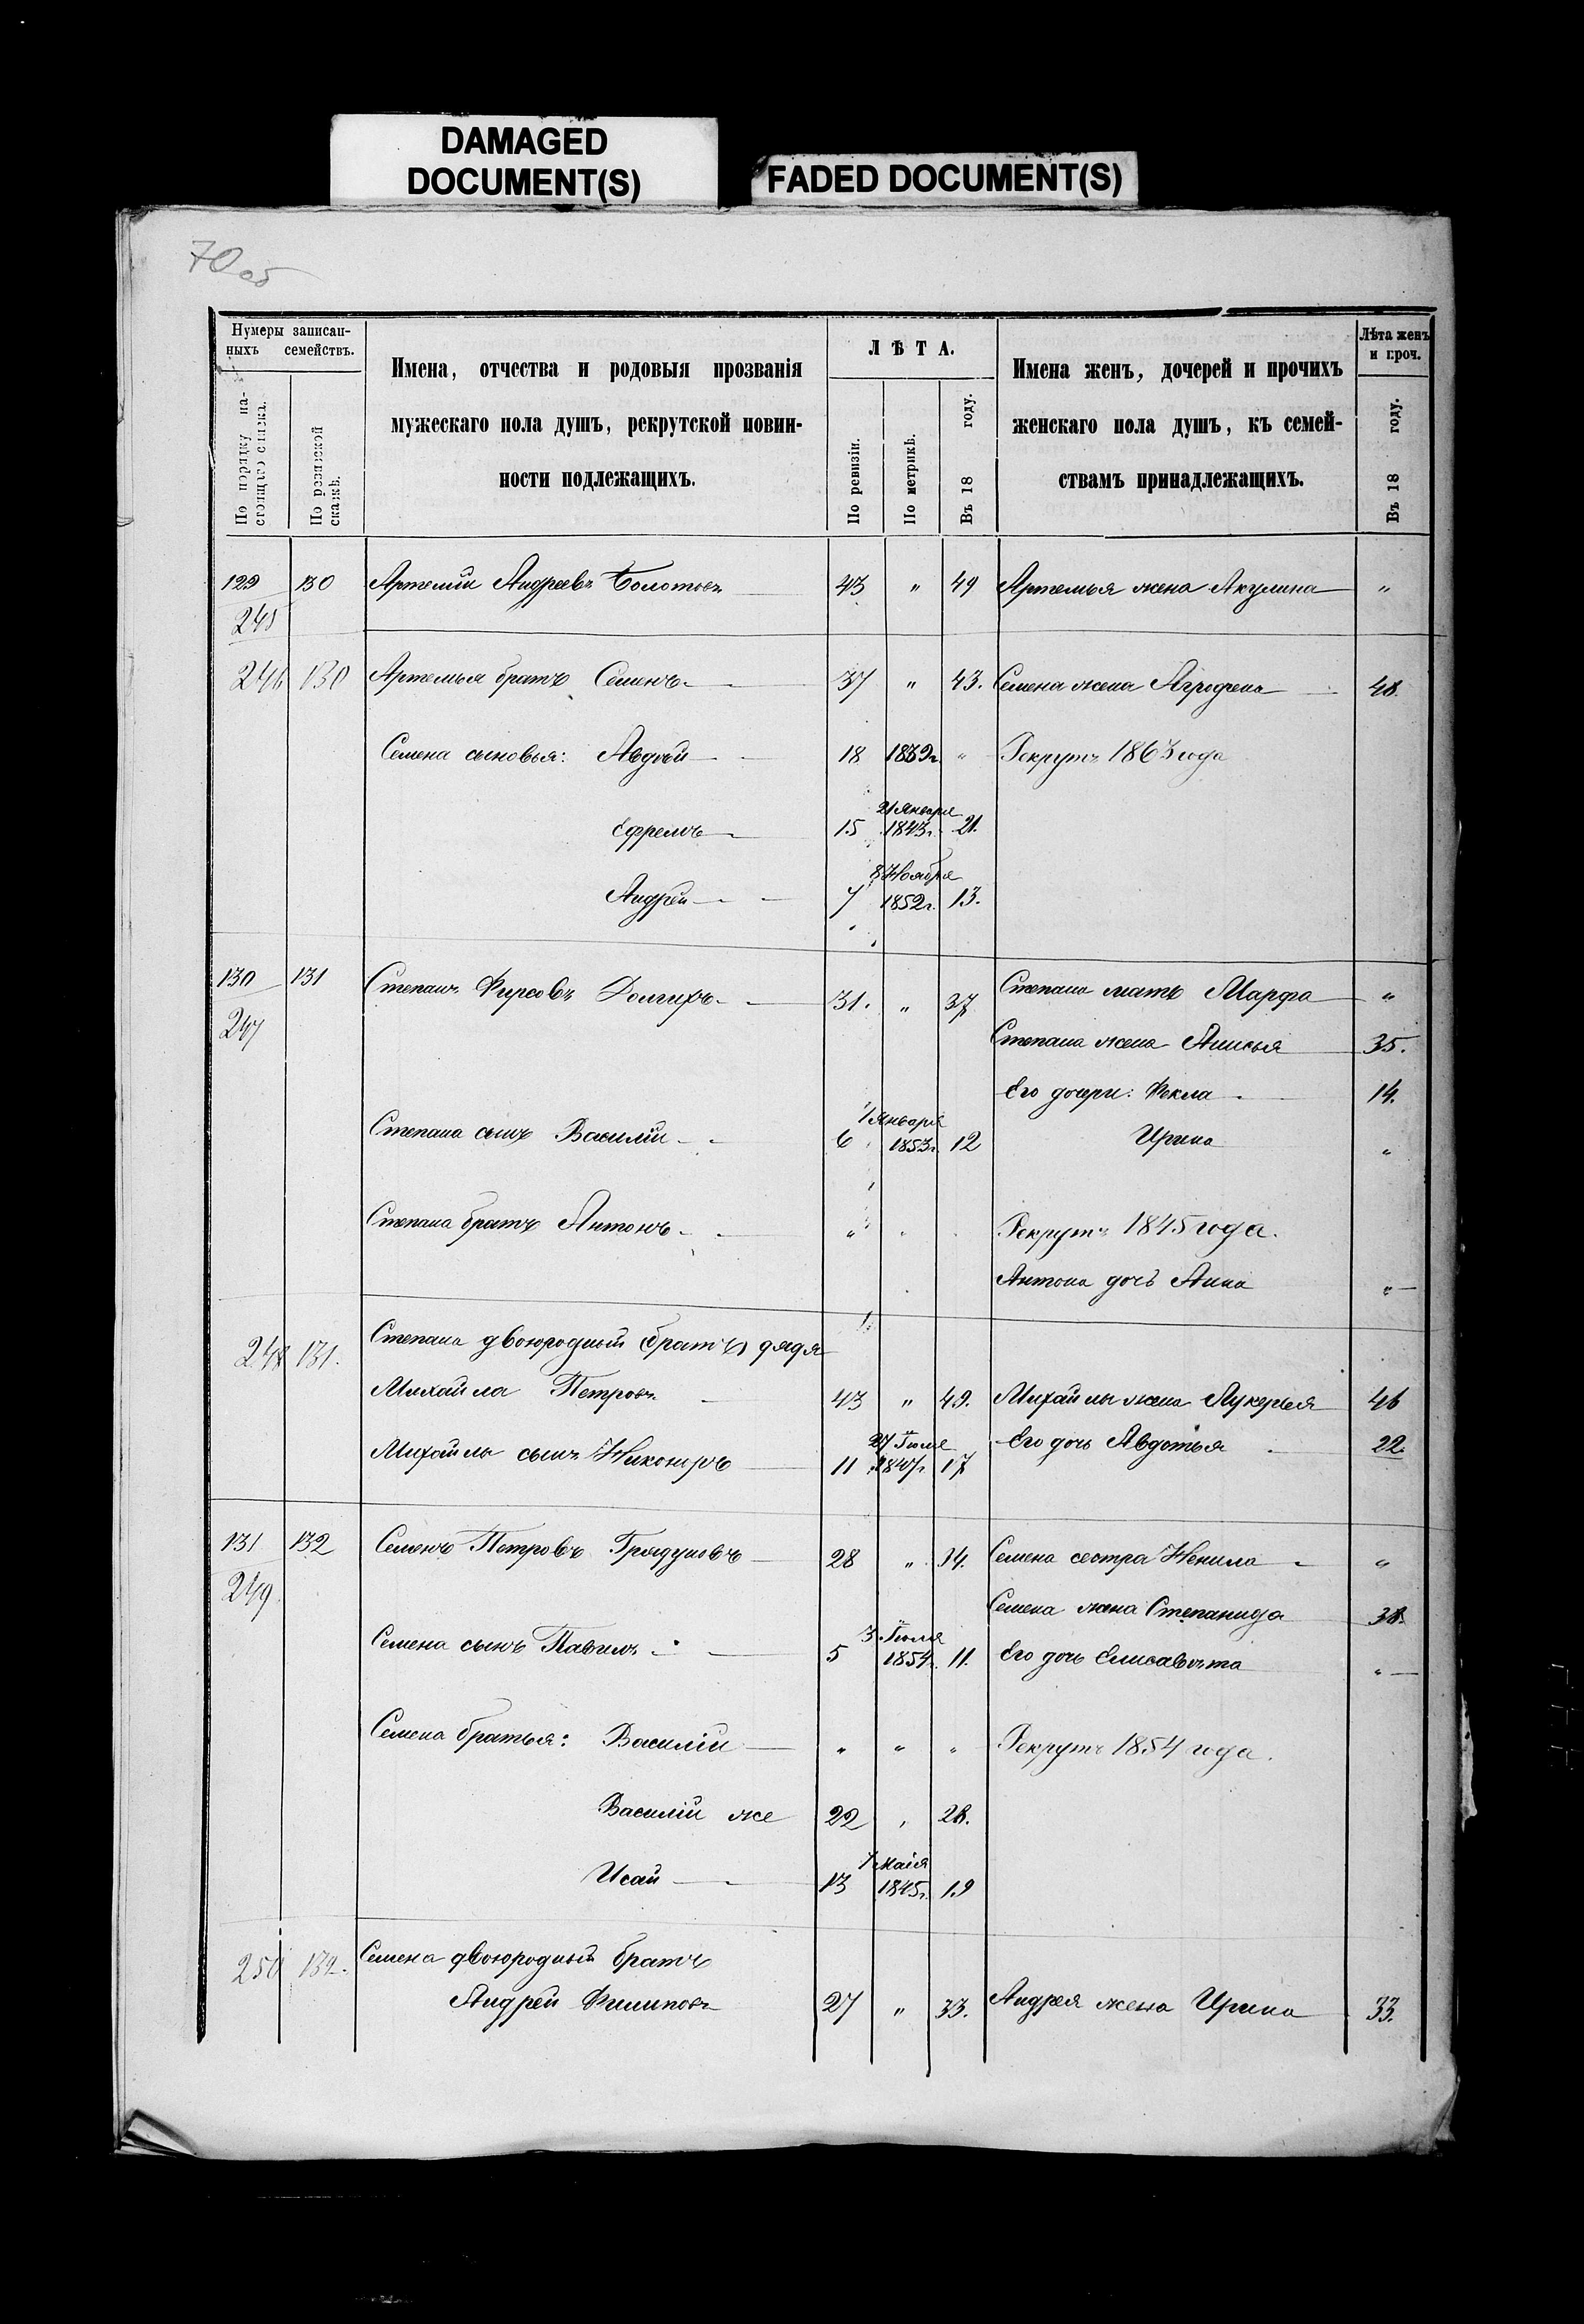 DAMAGED
DOCUMENT(S)
FADED DOCUMENT(S)
70 об
Нумеры записан-
ныхъ семействъ.
По порядку на-
стоящаго списка.
По ревизской
сказкѣ.
Имена, отчества и родовыя прозванія
мужескаго пола душъ, рекрутской повин-
ности подлежащихъ.
ЛѢТА.
По ревизіи.
По метрикѣ.
Въ 18 году.
Имена женъ, дочерей и прочихъ
женскаго пола душъ, къ семей-
ствамъ принадлежащихъ.
Лѣта женъ
и проч.
Въ 18 году.
129 130 Артемій Андреевъ Болотовъ 43 " 49 Артемья жена Акулина "
245
246 130 Артемья братъ Семенъ 37 " 43. Семена жена Агрофена 48.
Семена сыновья: Авдѣй 18 1839г. " Рекрутъ 1863 года
21 Января
Ефремъ 15 1843г. 21.
8 Ноября
Андрей 7 1852г. 13.
130 131 Степанъ Фирсовъ Долгихъ 31. " 37 Степана мать Марфа "
247
Степана жена Анисья 35.
Его дочери: Фекла 14.
1 Января
Степана сынъ Василій 6 1853г. 12 Ирина "
Степана братъ Антонъ " Рекрутъ 1845 года.
Антона дочь Анна "
248 131. Степана двоюродный братъ дядя
Михайла Петровъ 43 " 49. Михайлы жена Лукерья 46
27 Іюля
Михайлы сынъ Никоноръ 11 1847г. 17 Его дочь Авдотья 22.
131 132 Семенъ Петровъ Грядуновъ 28 " 34. Семена сестра Ненила "
249
Семена жена Степанида 38.
3 Іюля
Семена сынъ Павелъ 5 1854г. 11. Его дочь Елисавѣта "
Семена братья: Василій " " " Рекрутъ 1854 года.
Василій же 22 " 28.
7 Маія
Исай 13 1845г. 19
250 132. Семена двоюродный братъ
Андрей Филиповъ 27 " 33. Андрея жена Ирина 33.